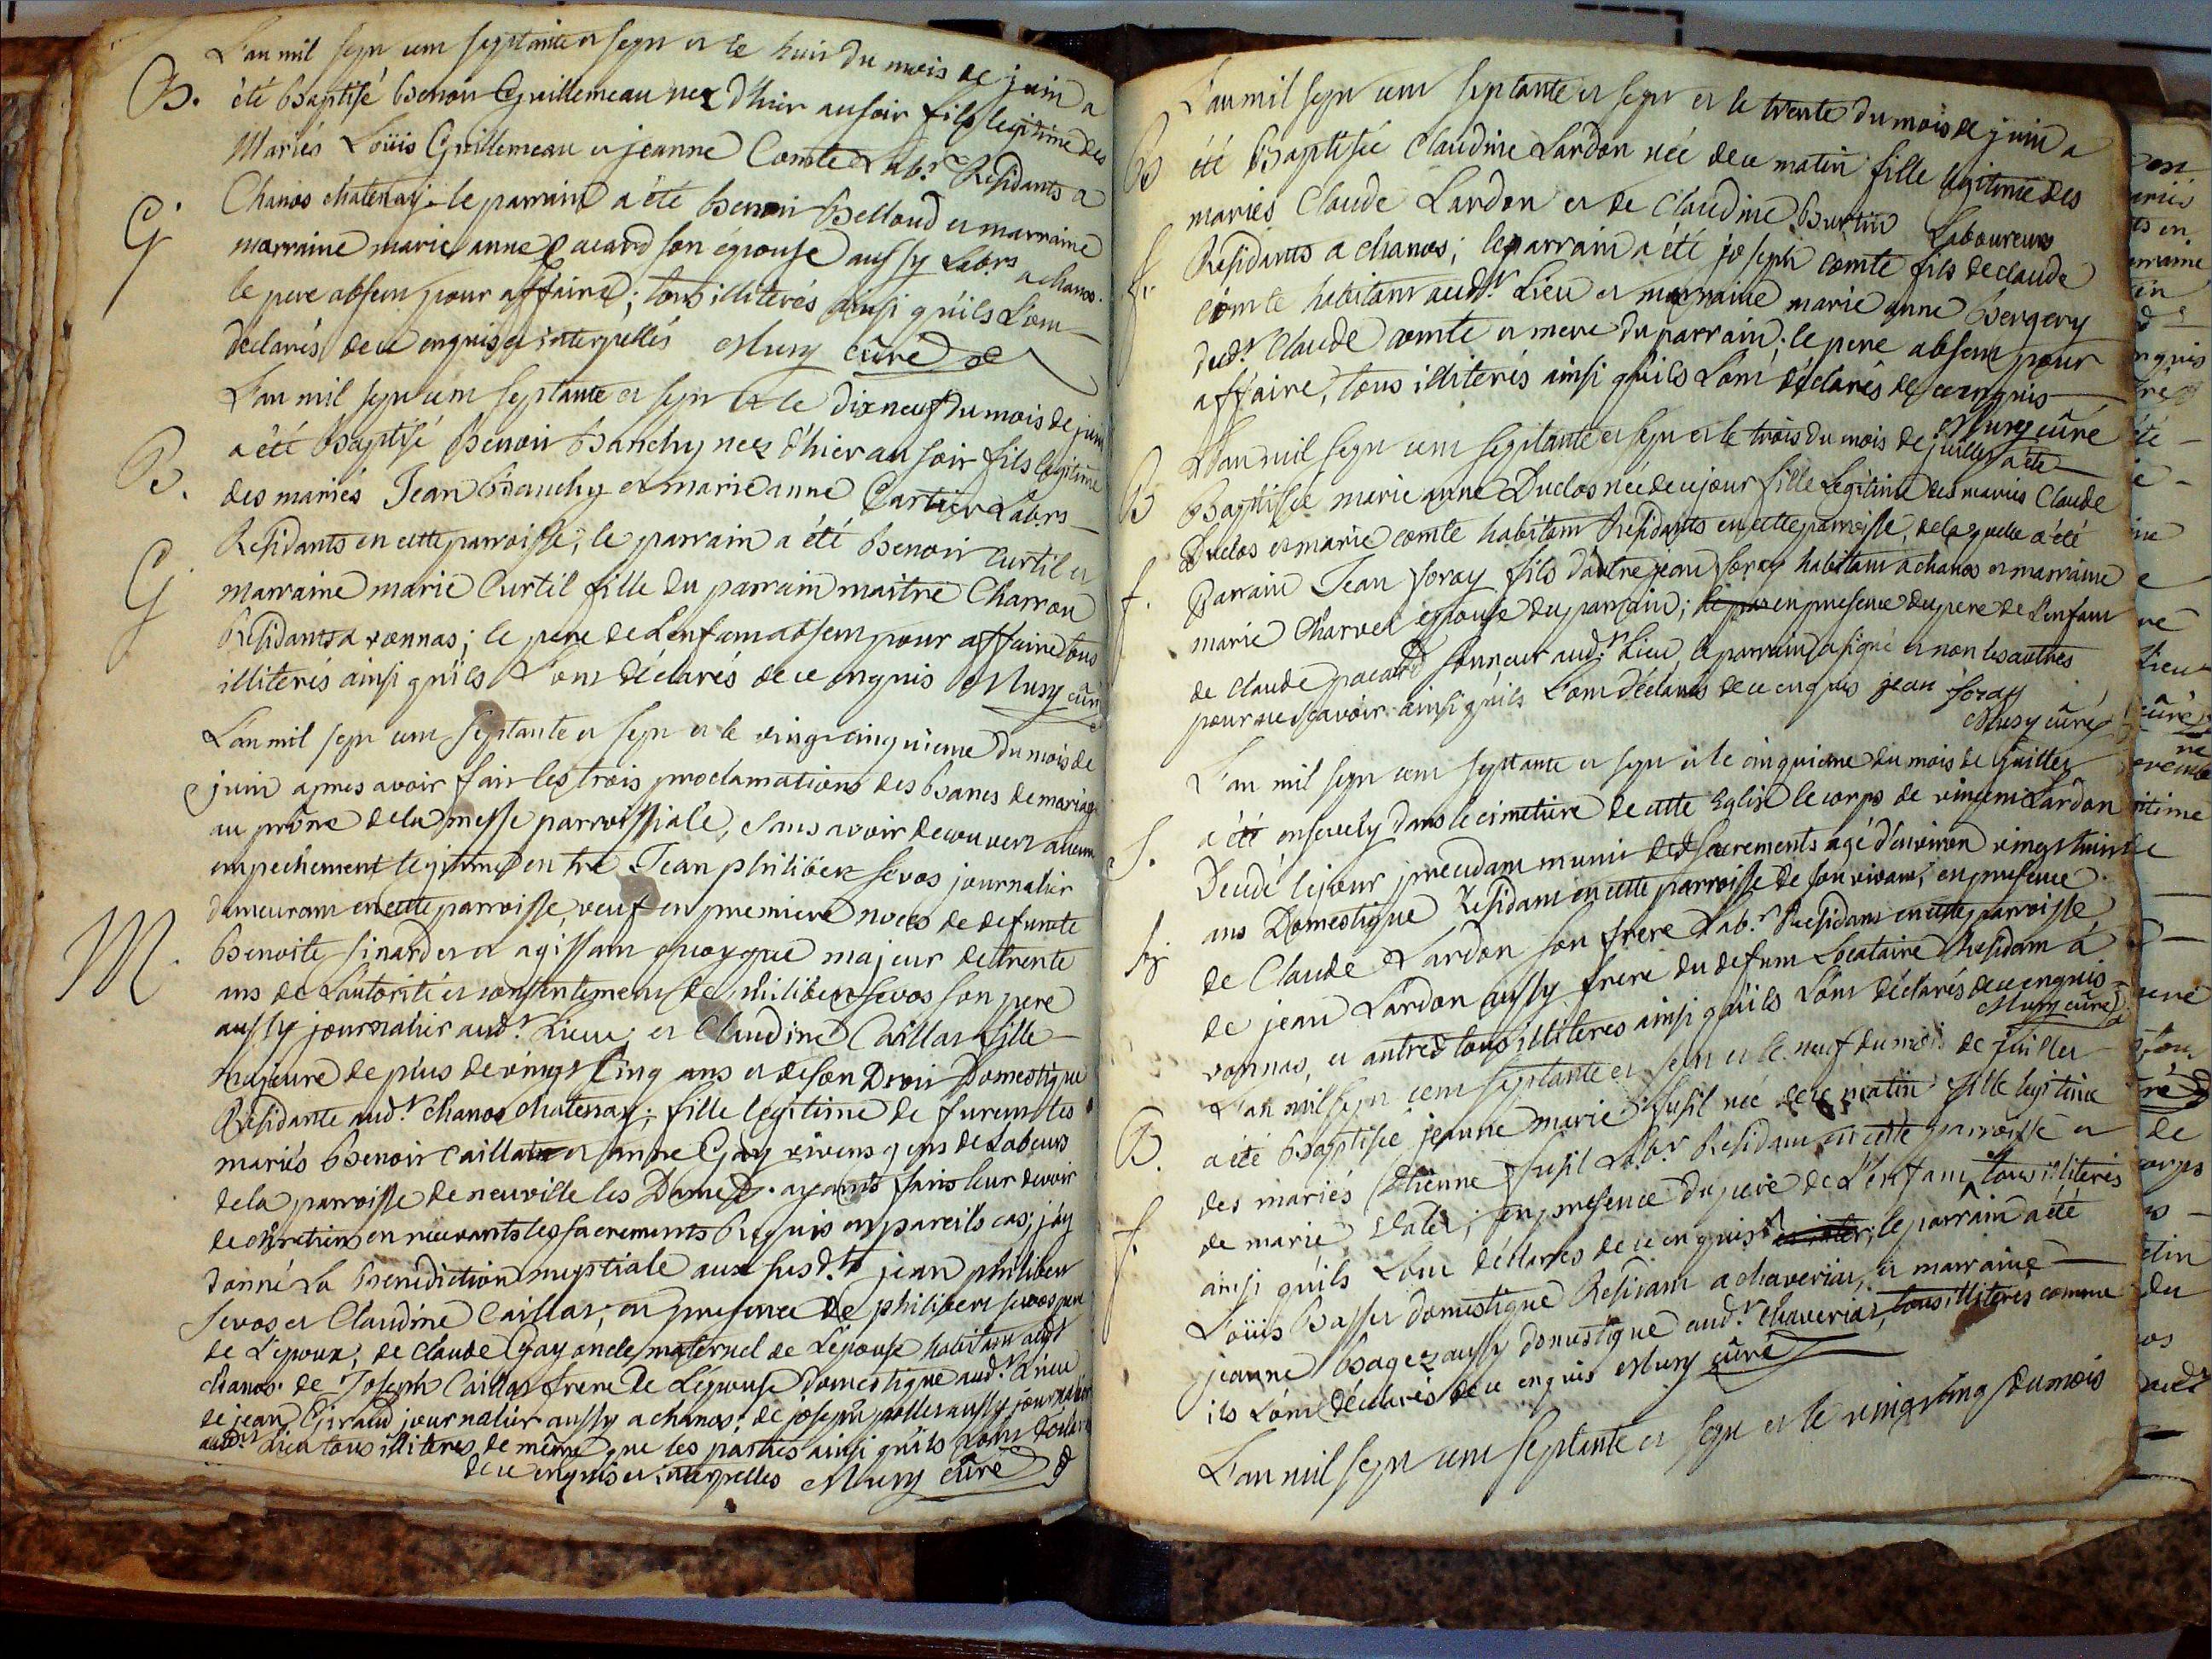 L'an mil sept cent septante et sept et le huit du mois de juin a
B. été Baptisé Benoit Guillemeau nez d'hier au soir fils legitime des
Mariés Loüis Guillemeau et jeanne Comte Labrs Residants a
Chanos chatenay; le parrain a été benoit Belloud et marraine
G marraine marie anne pacard son épouse aussy Labrs a chanos.
le pere absent pour affaire; tous illiterés ainsi qu'ils L'ont
declarés de ce enquis et interpellés Musy cûré
L'an mil sept cent septante et sept et le dix neuf du mois de juin
a été Baptisé Benoit Banchy nez d'hier au soir fils legitime
B. des mariés Jean Banchy et marie anne Cartier Labrs
Residants en cette parroisse; le parrain a été Benoit Curtil et
G marraine marie Curtil fille du parrain maitre Charron
Residants a vonnas; le pere de L'enfant absent pour affaire tous
illiterés ainsi qu'ils L'ont déclarés de ce enquis Musy cûré
L'an mil sept cent septante et sept et le vingt cinquieme du mois de
juin apres avoir fait les trois proclamations des Bancs de mariage
au prône de la messe parroissiale, sans avoir decouvert aucun
empechement legitime entre Jean philibert sevos journalier
demeurant en cette parroisse, veuf en premiere noces de defunte
Benoite sinard et agissant quoyque majeur de trente
M. ans de L'autorité et consentement de philibert sevos son pere
aussy journalier audt Lieu; et Claudine Caillat fille
majeure de plus de vingt Cinq ans et de son Droit Domestique
Residante audt chanos chatenay; fille legitime de furent les
mariés Benoit Caillat et anne Gay vivens gens de Labeurs
de la parroisse de neuville les Dames. ayants faits leur devoir
de chretiens en recevants les sacrements Requis en pareils cas; j'ay
donné La Benediction nuptiale aux susdts jean philibert
sevos et Claudine Caillat; en presence de philibert sevos pere
de L'epoux, de claude Gay oncle maternel de L'épouse habitant audt
chanos. de Joseph Caillat frere de L'épouse domestique audt Lieu
de jean Giraud journalier aussy a chanos. de joseph pelles aussy journalier
audt Lieu tous illiteres de même que les parties ainsi qu'ils L'ont déclaré
de ce enquis et interpelles Musy cûré
L'an mil sept cent septante et sept et le trente du mois de juin a
B été Baptisée Claudine Lardon née de ce matin fille legitime des
mariés Claude Lardon et de Claudine Burtin Laboureurs
f. Residants a chanos; le parrain a été joseph comte fils de claude
comte habitant audt Lieu et marraine marie anne Bergery
dudt Claude comte et mere du parrain; le pere absent pour
affaire, tous illiterés ainsi qu'ils L'ont déclarés de ce enquis
Musy cûré
L'an mil sept cent septante et sept et le trois du mois de juillet a été
B Baptisée marie anne Duclos née de ce jour fille Legitime des mariés Claude
Duclos et marie comte habitant Residants en cette parroisse, de laquelle a été
f. Parrain Jean foray fils d'autre jean foray habitant a chanos et marraine
marie Charvet epouse du parrain; le pere en presence du pere de L'enfant
de claude pacard sonneur audt Lieu le parrain a signé et non les autres
pour ne sçavoir ainsi qu'ils L'ont déclarés de ce enquis jean foray
Musy cûré
L'an mil sept cent septante et sept et le cinquieme du mois de juillet
S. a été ensevely dans le cimetiere de cette Eglise le corps de vincent Lardon
Decedé le jour precedant munit des sacrements agé d'environ vingt huit
ans Domestique Residant en cette parroisse de son vivant, en presence
de Claude Lardon son frere Labr Residant en cette parroisse
de jean Lardon aussy frere du defunt Locataire Residant à
vonnas, et autres tous illiteres ainsi qu'ils L'ont déclarés de ce enquis
Musy cûré
L'an mil sept cent septante et sept et le neuf du mois de juillet
B. a été Baptisée jeanne marie fusil née de ce matin fille legitime
des mariés Etienne fusil Labr Residant en cette parroisse et
f. de marie Vater; en presence du pere de L'enfant tous illiterés
ainsi qu'ils L'ont déclarés de ce enquis; le parrain a été
Loüis Basset domestique Residant a chaveriat, et marraine
jeanne Bages aussy domestique audt chaveriat, tous illiterés comme
ils L'ont déclarés de ce enquis Musy cûré
L'an mil sept cent septante et sept et le vingt cinq du mois